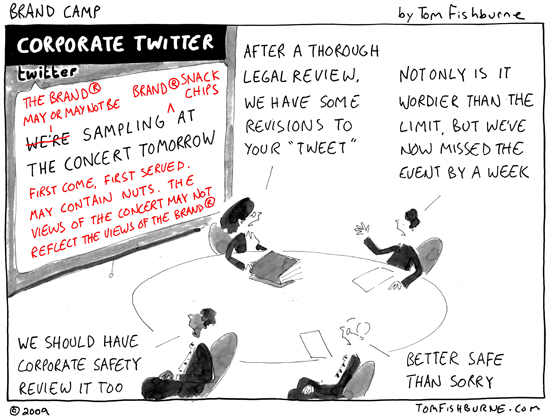 BRAND CAMP
by Tom Fishburne
CORPORATE TWITTER
twitter
THE BRAND®
MAY OR MAY NOT BE
BRAND® SNACK
CHIPS
WE'RE SAMPLING ^ AT
THE CONCERT TOMORROW
FIRST COME, FIRST SERVED.
MAY CONTAIN NUTS. THE
VIEWS OF THE CONCERT MAY NOT
REFLECT THE VIEWS OF THE BRAND®
AFTER A THOROUGH
LEGAL REVIEW,
WE HAVE SOME
REVISIONS TO
YOUR "TWEET"
NOT ONLY IS IT
WORDIER THAN THE
LIMIT, BUT WE'VE
NOW MISSED THE
EVENT BY A WEEK
WE SHOULD HAVE
CORPORATE SAFETY
REVIEW IT TOO
BETTER SAFE
THAN SORRY
© 2009
TOMFISHBURNE.COM